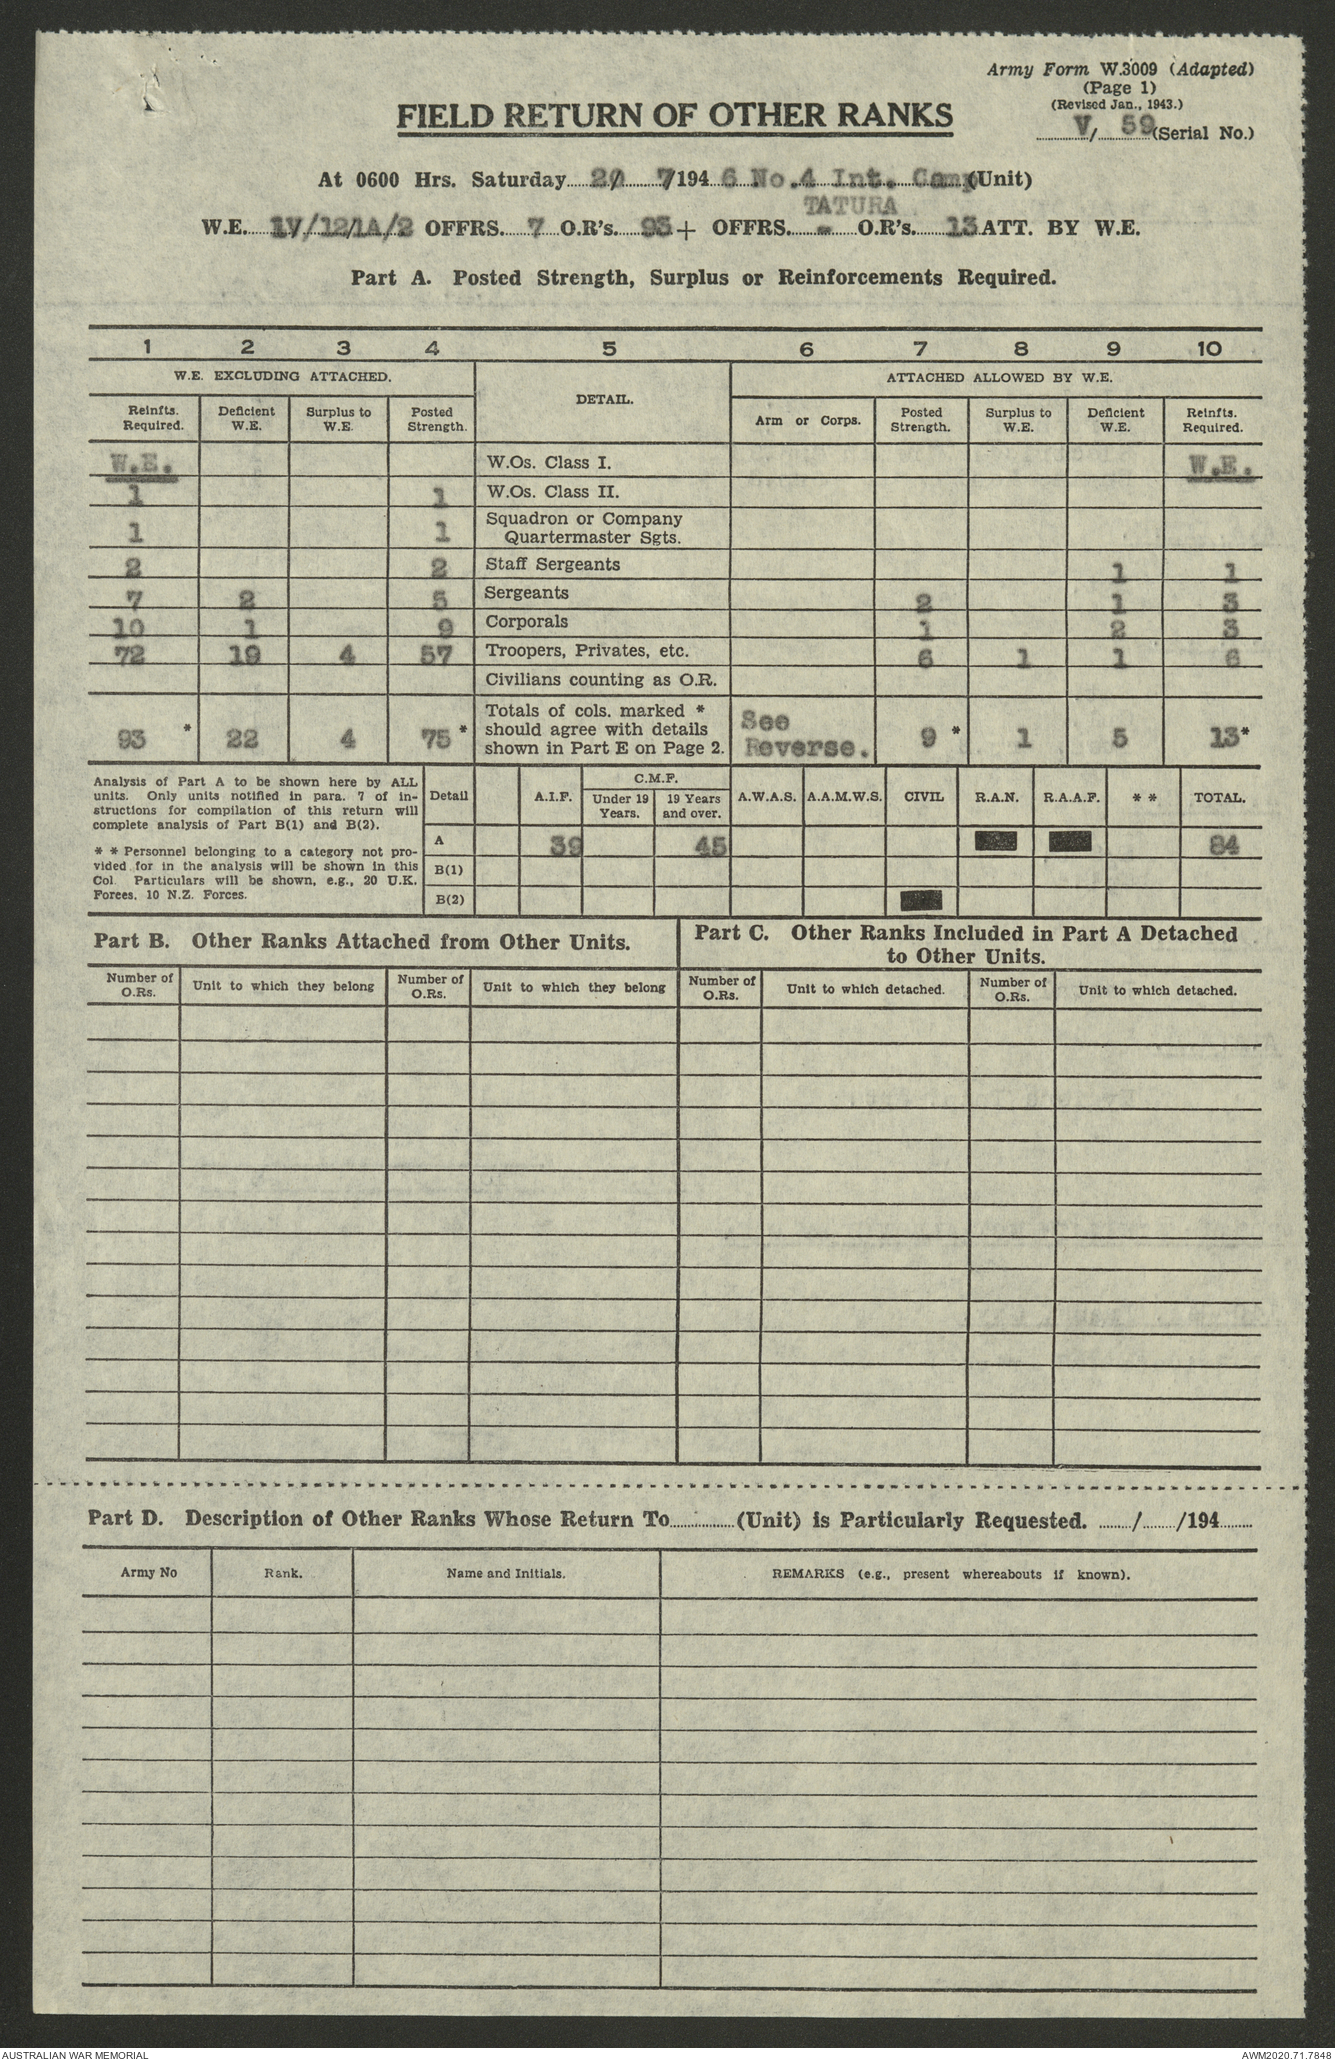 Army Form W.3009 (Adapted)
(Page 1)
(Revised Jan., 1943.)
V/ 59 (Serial No.)
FIELD RETURN OF OTHER RANKS
At 0600 Hrs. Saturday 20/ 7/194 6 No.4 Int. Camp (Unit)
TATURA
W.E. 1V/12/1A/2 OFFRS. 7 O.R's. 93 + OFFRS. - O.R's. 13 ATT. BY W.E.
Part A. Posted Strength, Surplus or Reinforcements Required.
1 2 3 4 5 6 7 8 9 10
W.E. EXCLUDING ATTACHED. DETAIL. ATTACHED ALLOWED BY W.E.
Reinfts. Required. Deficient W.E. Surplus to W.E. Posted Strength. Arm or Corps. Posted Strength. Surplus to W.E. Deficient W.E. Reinfts. Required.
W.E. W.Os. Class I. W.E.
1 1 W.Os. Class II.
1 1 Squadron or Company Quartermaster Sgts.
2 2 Staff Sergeants 1 1
7 2 5 Sergeants 2 1 3
10 1 9 Corporals 1 2 3
72 19 4 57 Troopers, Privates, etc. 6 1 1 6
Civilians counting as O.R.
93 * 22 4 75 * Totals of cols. marked * should agree with details shown in Part E on Page 2. See Reverse. 9 * 1 5 13 *
Analysis of Part A to be shown here by ALL
units. Only units notified in para. 7 of in-
structions for compilation of this return will
complete analysis of Part B(1) and B(2).
* * Personnel belonging to a category not pro-
vided for in the analysis will be shown in this
Col Particulars will be shown, e.g., 20 U.K.
Forces, 10 N.Z. Forces.
Detail A.I.F. C.M.F. Under 19 Years. 19 Years and over. A.W.A.S. A.A.M.W.S. CIVIL R.A.N. R.A.A.F. * * TOTAL.
A 39 45 84
B(1)
B(2)
Part B. Other Ranks Attached from Other Units.
Part C. Other Ranks Included in Part A Detached
to Other Units.
Number of O.Rs. Unit to which they belong Number of O.Rs. Unit to which they belong Number of O.Rs. Unit to which detached. Number of O.Rs. Unit to which detached.
Part D. Description of Other Ranks Whose Return To............(Unit) is Particularly Requested. ......../......../194........
Army No Rank. Name and Initials. REMARKS (e.g., present whereabouts if known).
AUSTRALIAN WAR MEMORIAL AWM2020.71.7848